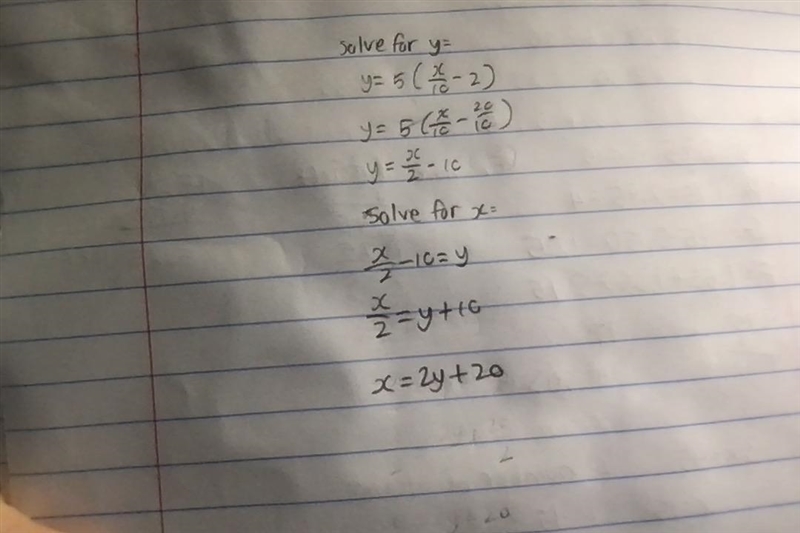 Solve for y=
y= 5 ( x/10 - 2 )
y= 5 ( x/10 - 20/10 )
y = x/2 - 10
Solve for x=
x/2 - 10 = y
x/2 = y + 10
x = 2y + 20